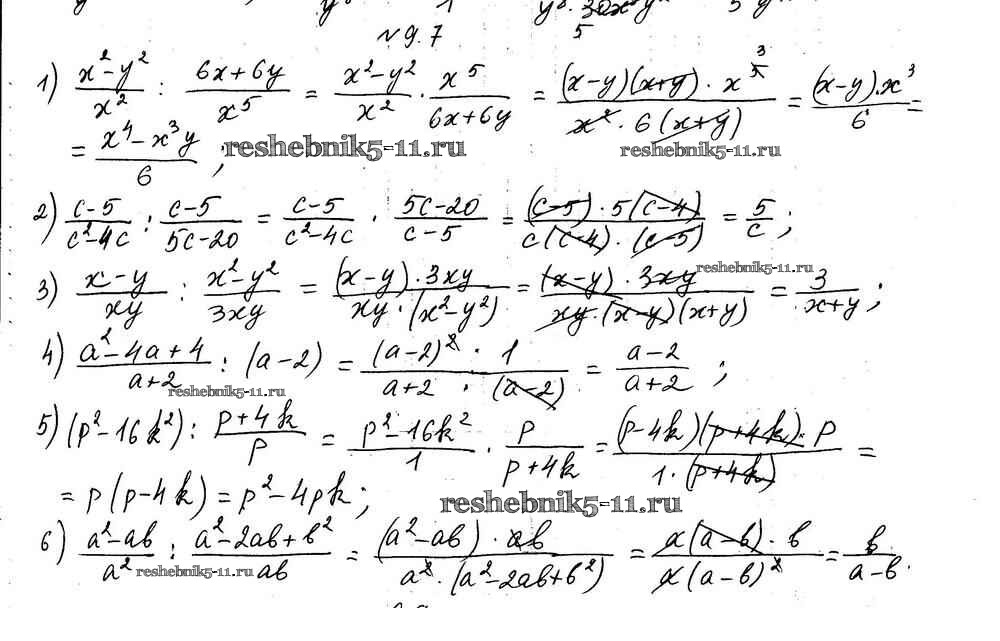 №9.7
1) (x²-y²)/x² : (6x+6y)/x⁵ = (x²-y²)/x² · x⁵/(6x+6y) = ((x-y)(x+y) · x⁵ ³)/(x² · 6(x+y)) = ((x-y)·x³)/6 =
= (x⁴-x³y)/6 ; reshebnik5-11.ru reshebnik5-11.ru
2) (c-5)/(c²-4c) : (c-5)/(5c-20) = (c-5)/(c²-4c) · (5c-20)/(c-5) = ((c-5)·5(c-4))/(c(c-4)·(c-5)) = 5/c ;
3) (x-y)/(xy) : (x²-y²)/(3xy) = ((x-y)·3xy)/(xy·(x²-y²)) = ((x-y)·3xy)/(xy·(x-y)(x+y)) = 3/(x+y) ; reshebnik5-11.ru
4) (a²-4a+4)/(a+2) : (a-2) = ((a-2)²·1)/(a+2·(a-2)) = (a-2)/(a+2) ;
reshebnik5-11.ru
5) (p²-16k²) : (p+4k)/p = (p²-16k²)/1 · p/(p+4k) = ((p-4k)(p+4k)·p)/(1·(p+4k)) =
= p(p-4k) = p²-4pk ; reshebnik5-11.ru
6) (a²-ab)/a² : (a²-2ab+b²)/(ab) = ((a²-ab)·ab)/(a²·(a²-2ab+b²)) = (a(a-b)·b)/(a(a-b)²) = b/(a-b).
reshebnik5-11.ru